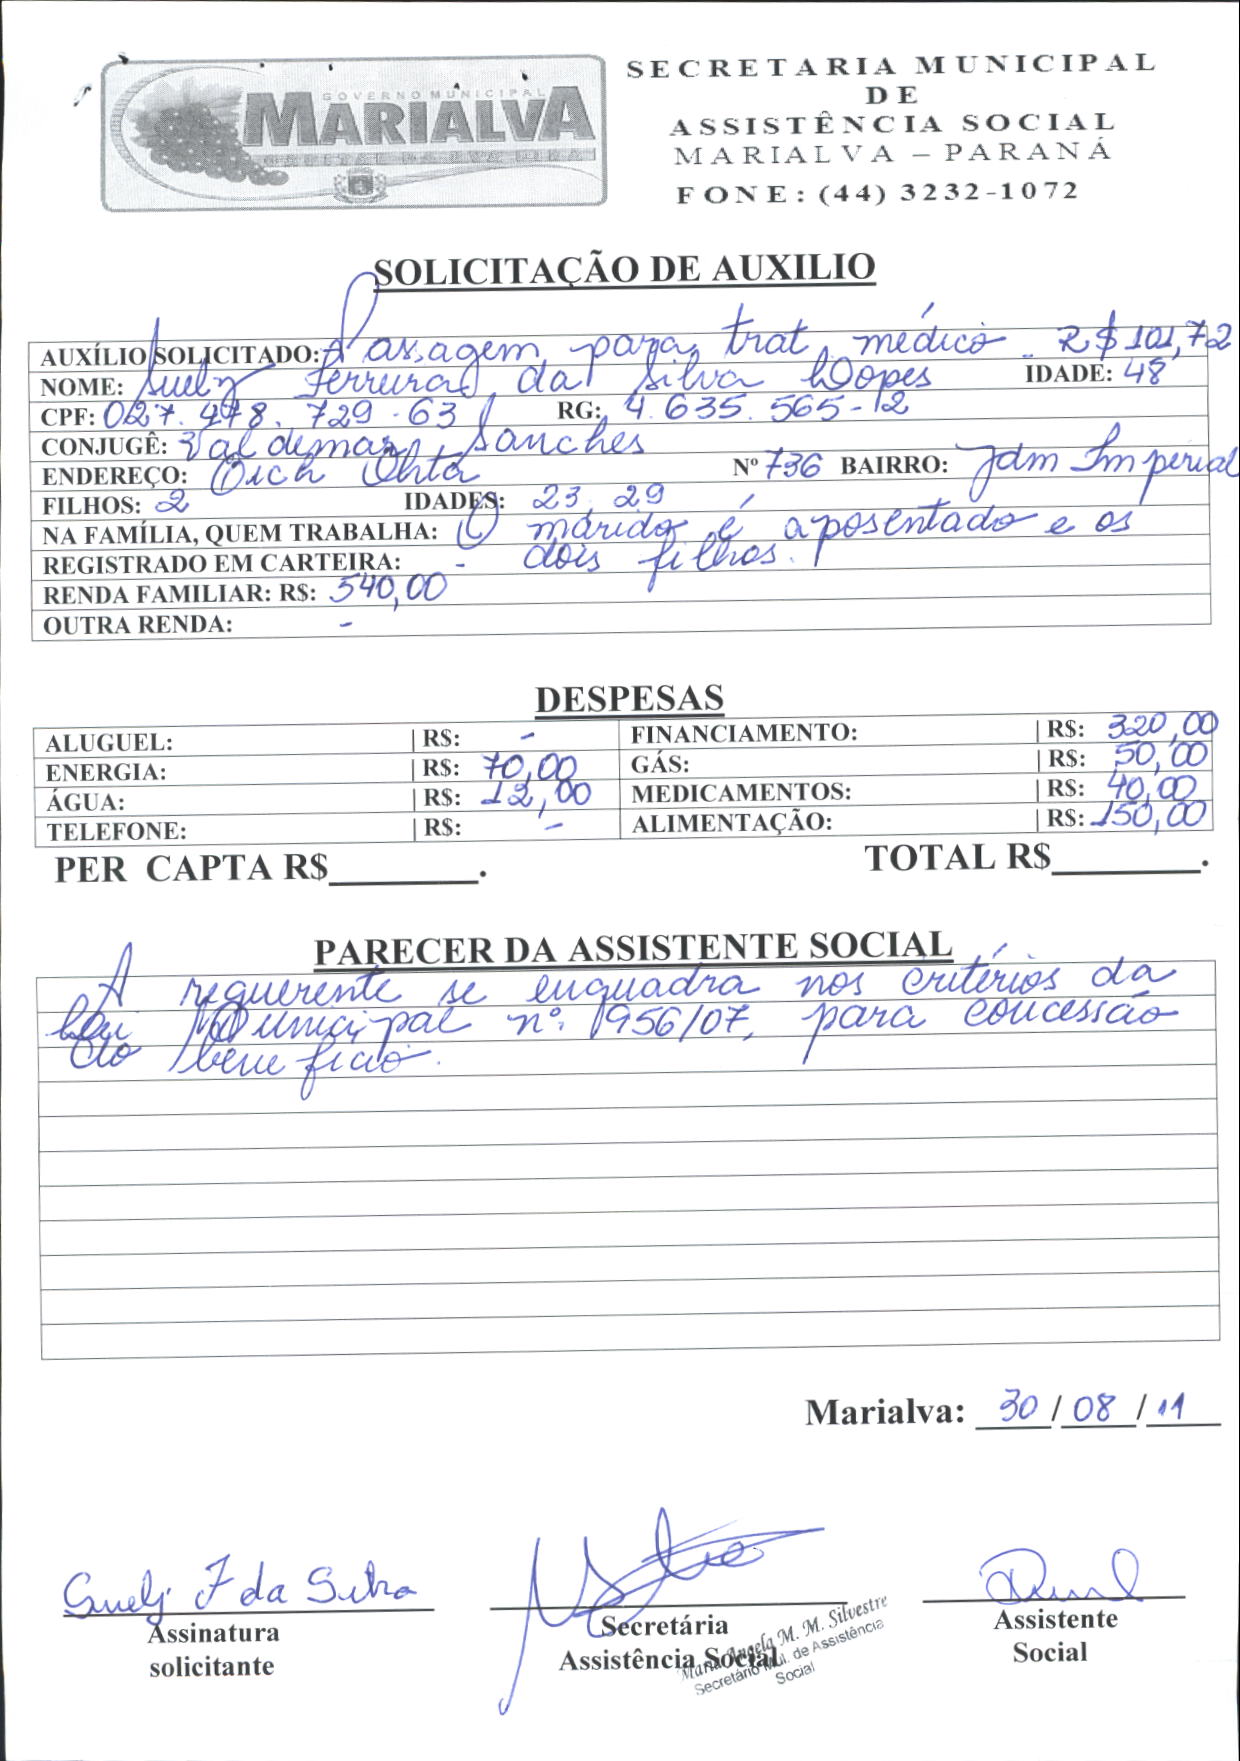 GOVERNO MUNICIPAL
MARIALVA
SECRETARIA MUNICIPAL
DE
ASSISTÊNCIA SOCIAL
MARIALVA – PARANÁ
FONE: (44) 3232-1072
SOLICITAÇÃO DE AUXILIO
AUXÍLIO SOLICITADO: Passagem para trat. médico R$ 101,72
NOME: Suely Ferreira da Silva Lopes IDADE: 48
CPF: 027.478.729-63 RG: 4.635.565-2
CONJUGÊ: Valdemar Sanches
ENDEREÇO: Oich Ohta Nº 736 BAIRRO: Jdm Imperial
FILHOS: 2 IDADES: 23, 29
NA FAMÍLIA, QUEM TRABALHA: O marido é aposentado e os
REGISTRADO EM CARTEIRA: - dois filhos.
RENDA FAMILIAR: R$: 540,00
OUTRA RENDA: -
DESPESAS
ALUGUEL: | R$: - FINANCIAMENTO: | R$: 320,00
ENERGIA: | R$: 70,00 GÁS: | R$: 50,00
ÁGUA: | R$: 12,00 MEDICAMENTOS: | R$: 40,00
TELEFONE: | R$: - ALIMENTAÇÃO: | R$: 150,00
PER CAPTA R$________. TOTAL R$________.
PARECER DA ASSISTENTE SOCIAL
A requerente se enquadra nos critérios da
Lei Municipal nº. 1956/07, para concessão
do benefício.
Marialva: 30/08/11
Suely F da Silva
Assinatura
solicitante
Secretária
Assistência Social
Maria Angela M. M. Silvestre
Secretário Mul. de Assistência
Social
Assistente
Social